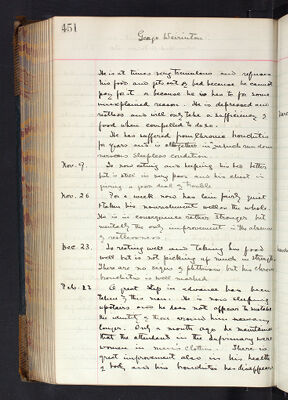 451
George Weirinton
He is at times very tremulous and refuses
his food and gets out of bed because he cannot
pay for it & because he is has to for some
unexplained reason. He is depressed and
restless and will only take a sufficiency of
food when compelled to do so.
He has suffered from Chronic bronchitis
for years and is altogether in
sleepless condition.
Nov. 9. Is now eating and keeping his bed better
but is still in very poor and his chest is
giving a good deal of trouble.
Nov. 26 For a week now has been fairly quiet
& taken his nourishment well on the whole.
He is in consequence rather stronger but
mentally the only improvement is the absence
of restlessness.
Dec 23. Is resting well and taking his food
well but is not picking up much in strength.
There are no signs of phthisis but his chronic
bronchitis is well marked.
Feb. 23 A great step in advance has been
taken by this man. He is now sleeping
upstairs and he does not appear to mistake
the identity of those around him now any
longer. Only a month ago he maintained
that the attendants in the Infirmary were
women in mens clothing. There is
great improvement also in his health
of body, and his bronchitis has disappeared